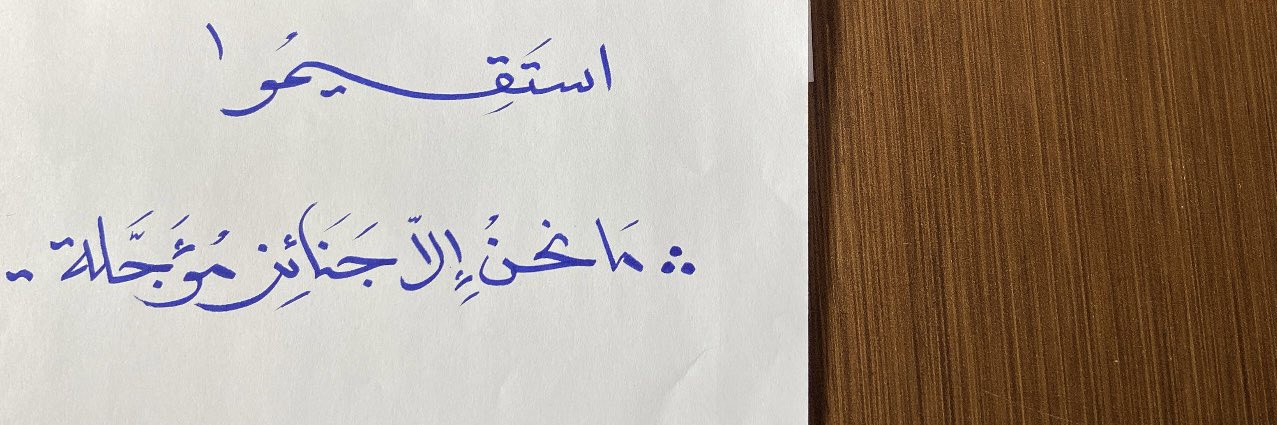 استَقِيمُوا
∴ مَا نحنُ إِلاّ جَنَائِز مُؤَجَّلَة ..